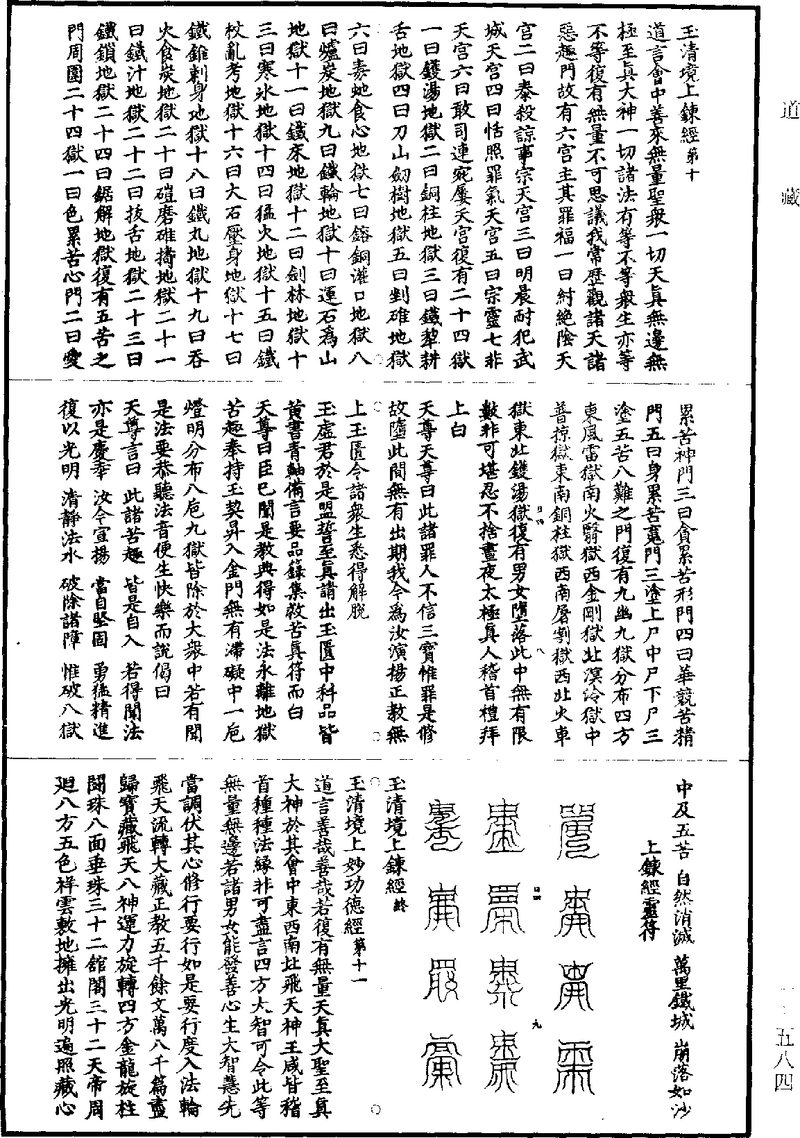 道藏
一·五八四
玉清境上鍊經第十
道言會中善來無量聖衆一切天真無邊無
極至真大神一切諸法有等不等衆生亦等
不等復有無量不可思議我常歷觀諸天諸
惡趣門故有六宮主其罪福一曰紂絕陰天
宮二曰泰殺諒事宗天宮三曰明晨耐犯武
城天宮四曰恬照罪氣天宮五曰宗靈七非
天宮六曰敢司連宛屢天宮復有二十四獄
一曰鑊湯地獄二曰銅柱地獄三曰鐵犂耕
舌地獄四曰刀山劒樹地獄五曰剉碓地獄
六曰毒虵食心地獄七曰鎔銅灌口地獄八
曰爐炭地獄九曰鐵輪地獄十曰運石爲山
地獄十一曰鐵床地獄十二曰劍林地獄十
三曰寒冰地獄十四曰猛火地獄十五曰鐵
杖亂考地獄十六曰大石壓身地獄十七曰
鐵錐刺身地獄十八曰鐵丸地獄十九曰吞
火食炭地獄二十曰磑磨碓擣地獄二十一
曰鐵汁地獄二十二曰拔舌地獄二十三曰
鐵鎖地獄二十四曰鋸解地獄復有五苦之
門周圍二十四獄一曰色累苦心門二曰愛
累苦神門三曰貪累苦形門四曰華競苦精
門五曰身累苦魂門三塗上尸中尸下尸三
塗五苦八難之門復有九幽九獄分布四方
東風雷獄南火翳獄西金剛獄北溟泠獄中
普掠獄東南銅柱獄西南屠割獄西北火車
獄東北鑊湯獄復有男女墮落此中無有限
數非可堪忍不捨晝夜太極真人稽首禮拜
上白
天尊天尊曰此諸罪人不信三寶惟罪是修
故墮此間無有出期我今爲汝演揚正教無
上玉匱令諸衆生悉得解脫
玉虛君於是盟誓至真請出玉匱中科品皆
黃書青軸備言要品籙集救苦真符而白
天尊曰臣已聞是教典得如是法永離地獄
苦趣奉持玉契昇入金門無有滯礙中一卮
燈明分布八卮九獄皆除於大衆中若有聞
是法要恭聽法音便生快樂而說偈曰
天尊言曰 此諸苦趣 皆是自入 若得聞法
亦是慶幸 汝今宣揚 當自堅固 勇猛精進
復以光明 清靜法水 破除諸障 惟破八獄
中及五苦 自然消滅 萬里鐵城 崩落如沙
上鍊經靈符
玉清境上鍊經終
玉清境上妙功德經第十一
道言善哉善哉若復有無量天真大聖至真
大神於其會中東西南北飛天神王咸皆稽
首種種法緣非可盡言四方大智可令此等
無量無邊若諸男女能發善心生大智慧先
當調伏其心修行要行如是要行度入法輪
飛天流轉大藏正教五千餘文萬八千篇盡
歸寶藏飛天八神運力旋轉四方金龍旋柱
鬪珠八面垂珠三十二舘閣三十二天帝周
廻八方五色祥雲敷地擁出光明遍照藏心